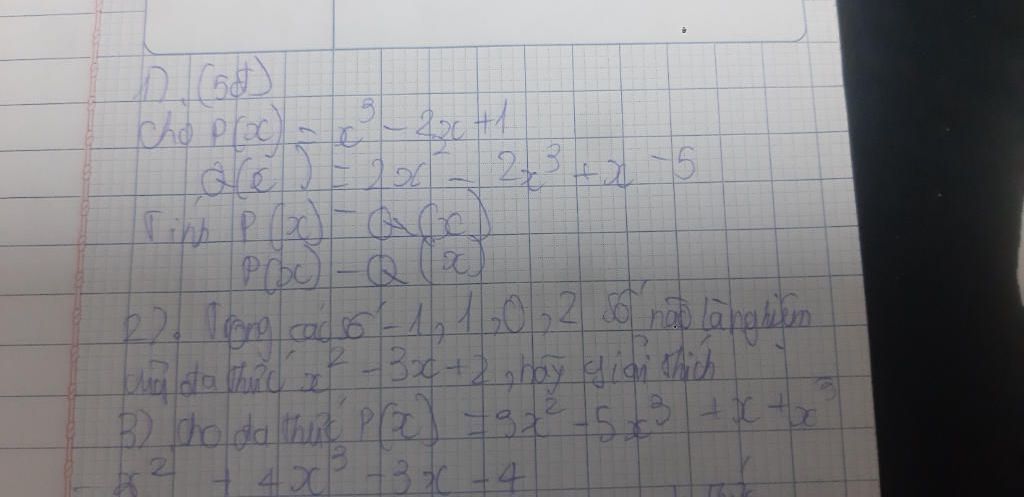 1). (5đ)
Cho P(x) = x³ - 2x + 1
Q(x) = 2x² - 2x³ + x - 5
Tính P(x) - Q(x)
P(x) - Q(x)
2). Trong các số -1, 1, 0, 2 số nào là nghiệm
của đa thức x² - 3x + 2, hãy giải thích
3) Cho đa thức P(x) = 3x² - 5x³ + x + x³
x² + 4x³ - 3x - 4